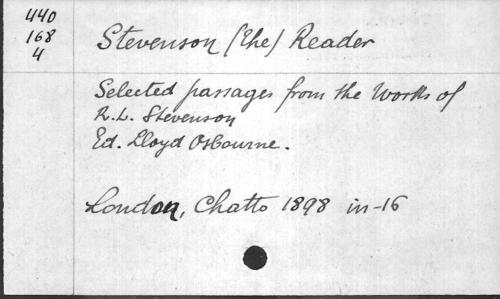 440
168
4
Stevenson (The) Reader
Selected passages from the Works of
R.L. Stevenson
Ed. Lloyd Osbourne.
London, Chatto 1898 in-16